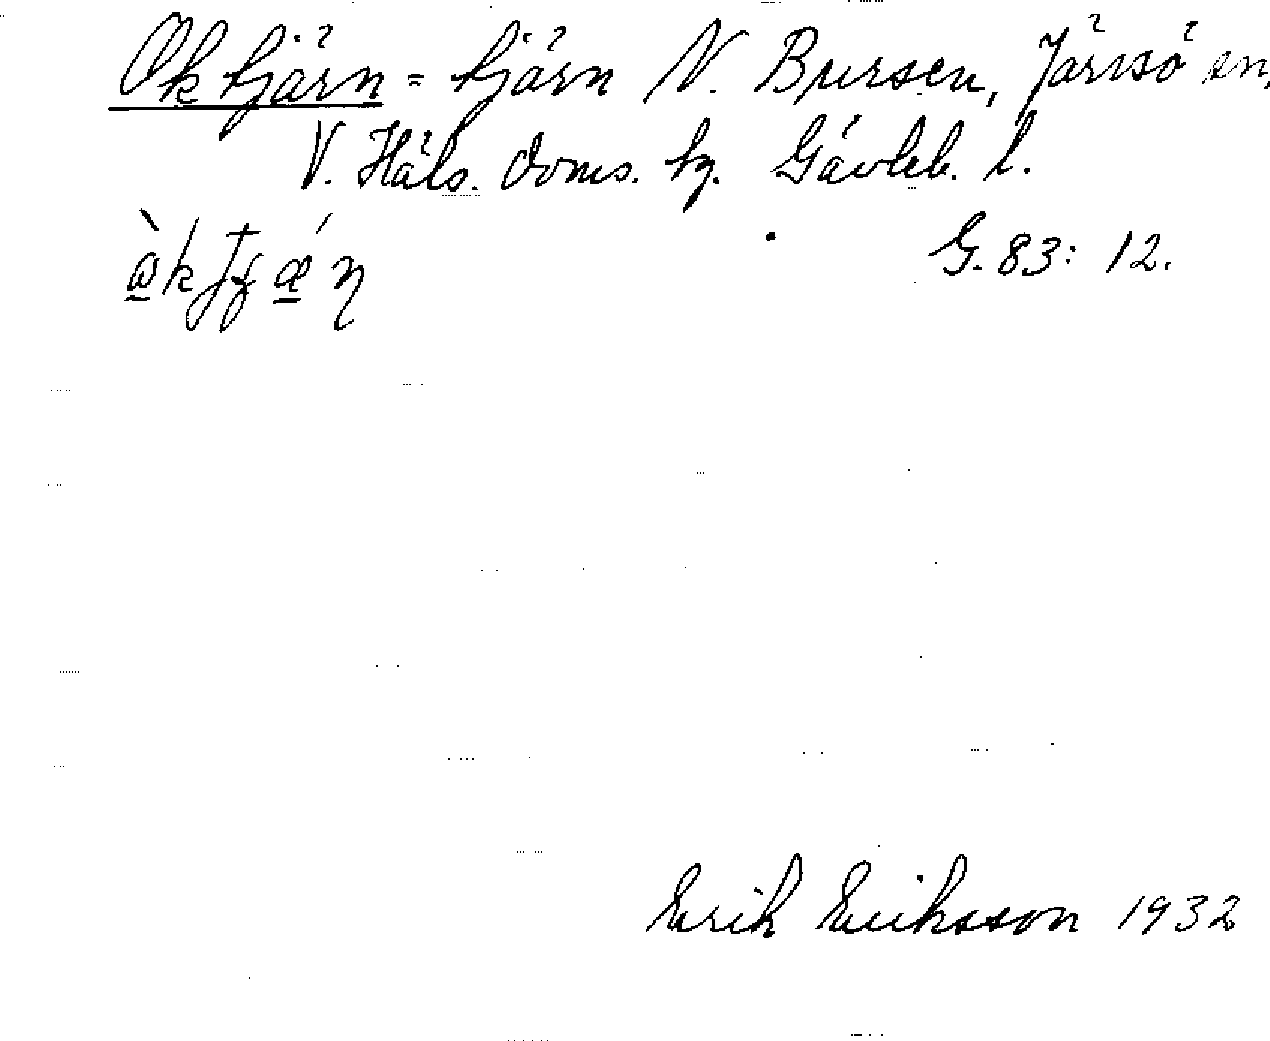 Oktjärn = tjärn N. Bursen, Järvsö sn,
V. Häls. doms. hg. Gävleb. l.
G. 83: 12.
Erik Eriksson 1932